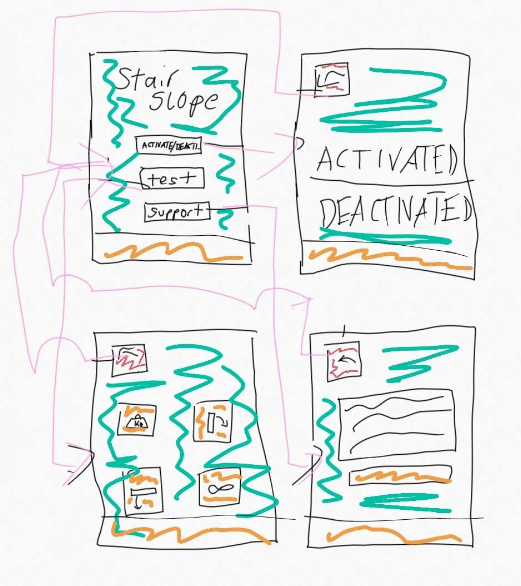 Stair
Slope
ACTIVATE/DEACTI.
test
support
ACTIVATED
DEACTIVATED
KG